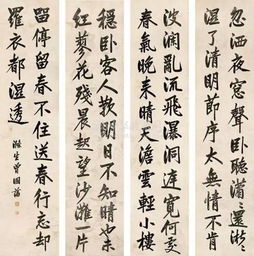 忽洒夜窗聲卧聽瀟瀟還淅淅
濕了清明節序太無情不肯
亂流飛瀑洞庭寬何
春氣晚來晴天澹雲輕小樓
穩卧客人明日不知晴也未
紅蓼花殘晨起望沙灘一片
留停留春不住送春行忘却
羅衣都濕透
滌生曾國藩